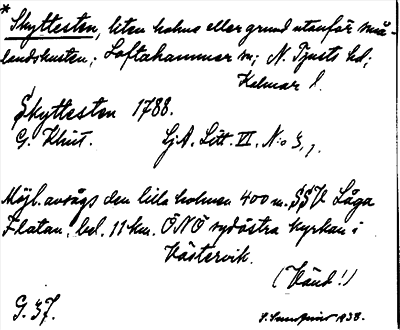 * Skyttesten, liten holme eller grund utanför små-
landskusten; Loftahammar sn; N. Tjusts hd;
Kalmar l.
Skyttesten 1788.
G. Klint. Sj.A. Litt. VI. N:o 3,1.
Möjl. avsågs den lilla holmen 400 m. SSV Låga
Flatan, bel. 11 km. ÖNÖ sydöstra kyrkan i
Västervik.
(Vänd!)
G. 37. 1938.